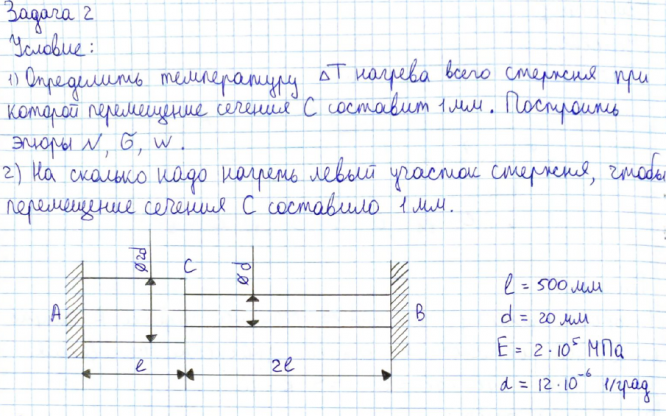 Задача 2
Условие:
1) Определить температуру ΔT нагрева всего стержня при
которой перемещение сечения C составит 1 мм. Построить
эпюры N, σ, w.
2) На сколько надо нагреть левый участок стержня, чтобы
перемещение сечения C составило 1 мм.
⌀2d
C
⌀d
A
B
l
2l
l = 500 мм
d = 20 мм
E = 2·10⁵ МПа
α = 12·10⁻⁶ 1/град